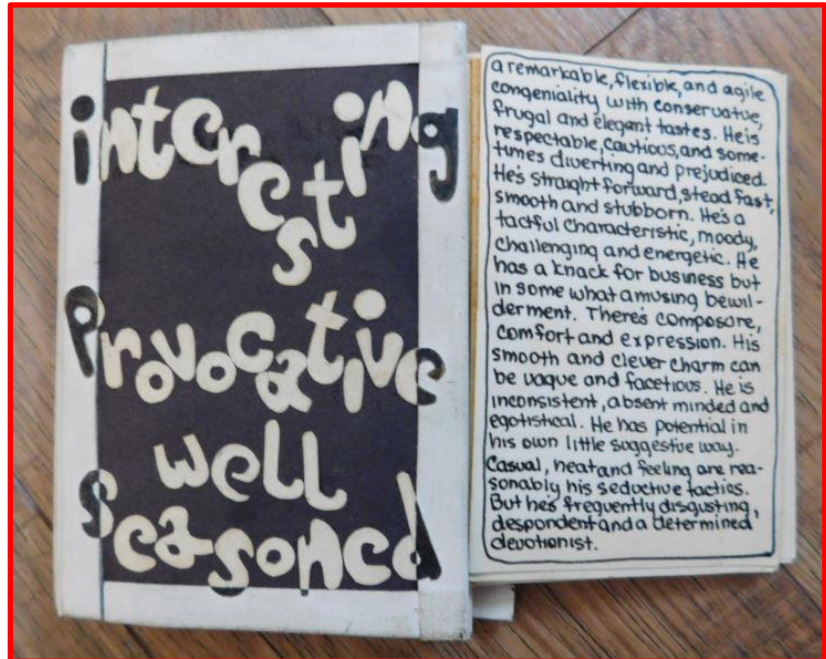 interesting
Provocative
well
Seasoned
a remarkable, flexible, and agile
congeniality with conservatve,
frugal and elegant tastes. He is
respectable, cautious, and some-
times diverting and prejudiced.
He's straight forward, stead fast,
smooth and stubborn. He's a
tactful characteristic, moody,
challenging and energetic. He
has a knack for business but
in some what amusing bewil-
derment. There's composure,
comfort and expression. His
smooth and clever charm can
be vague and facetious. He is
inconsistent, absent minded and
egotistical. He has potential in
his own little suggestive way.
Casual, heat and feeling are rea-
sonably his seductive tactics.
But he's frequently disgusting,
despondent and a determined
devotionist.